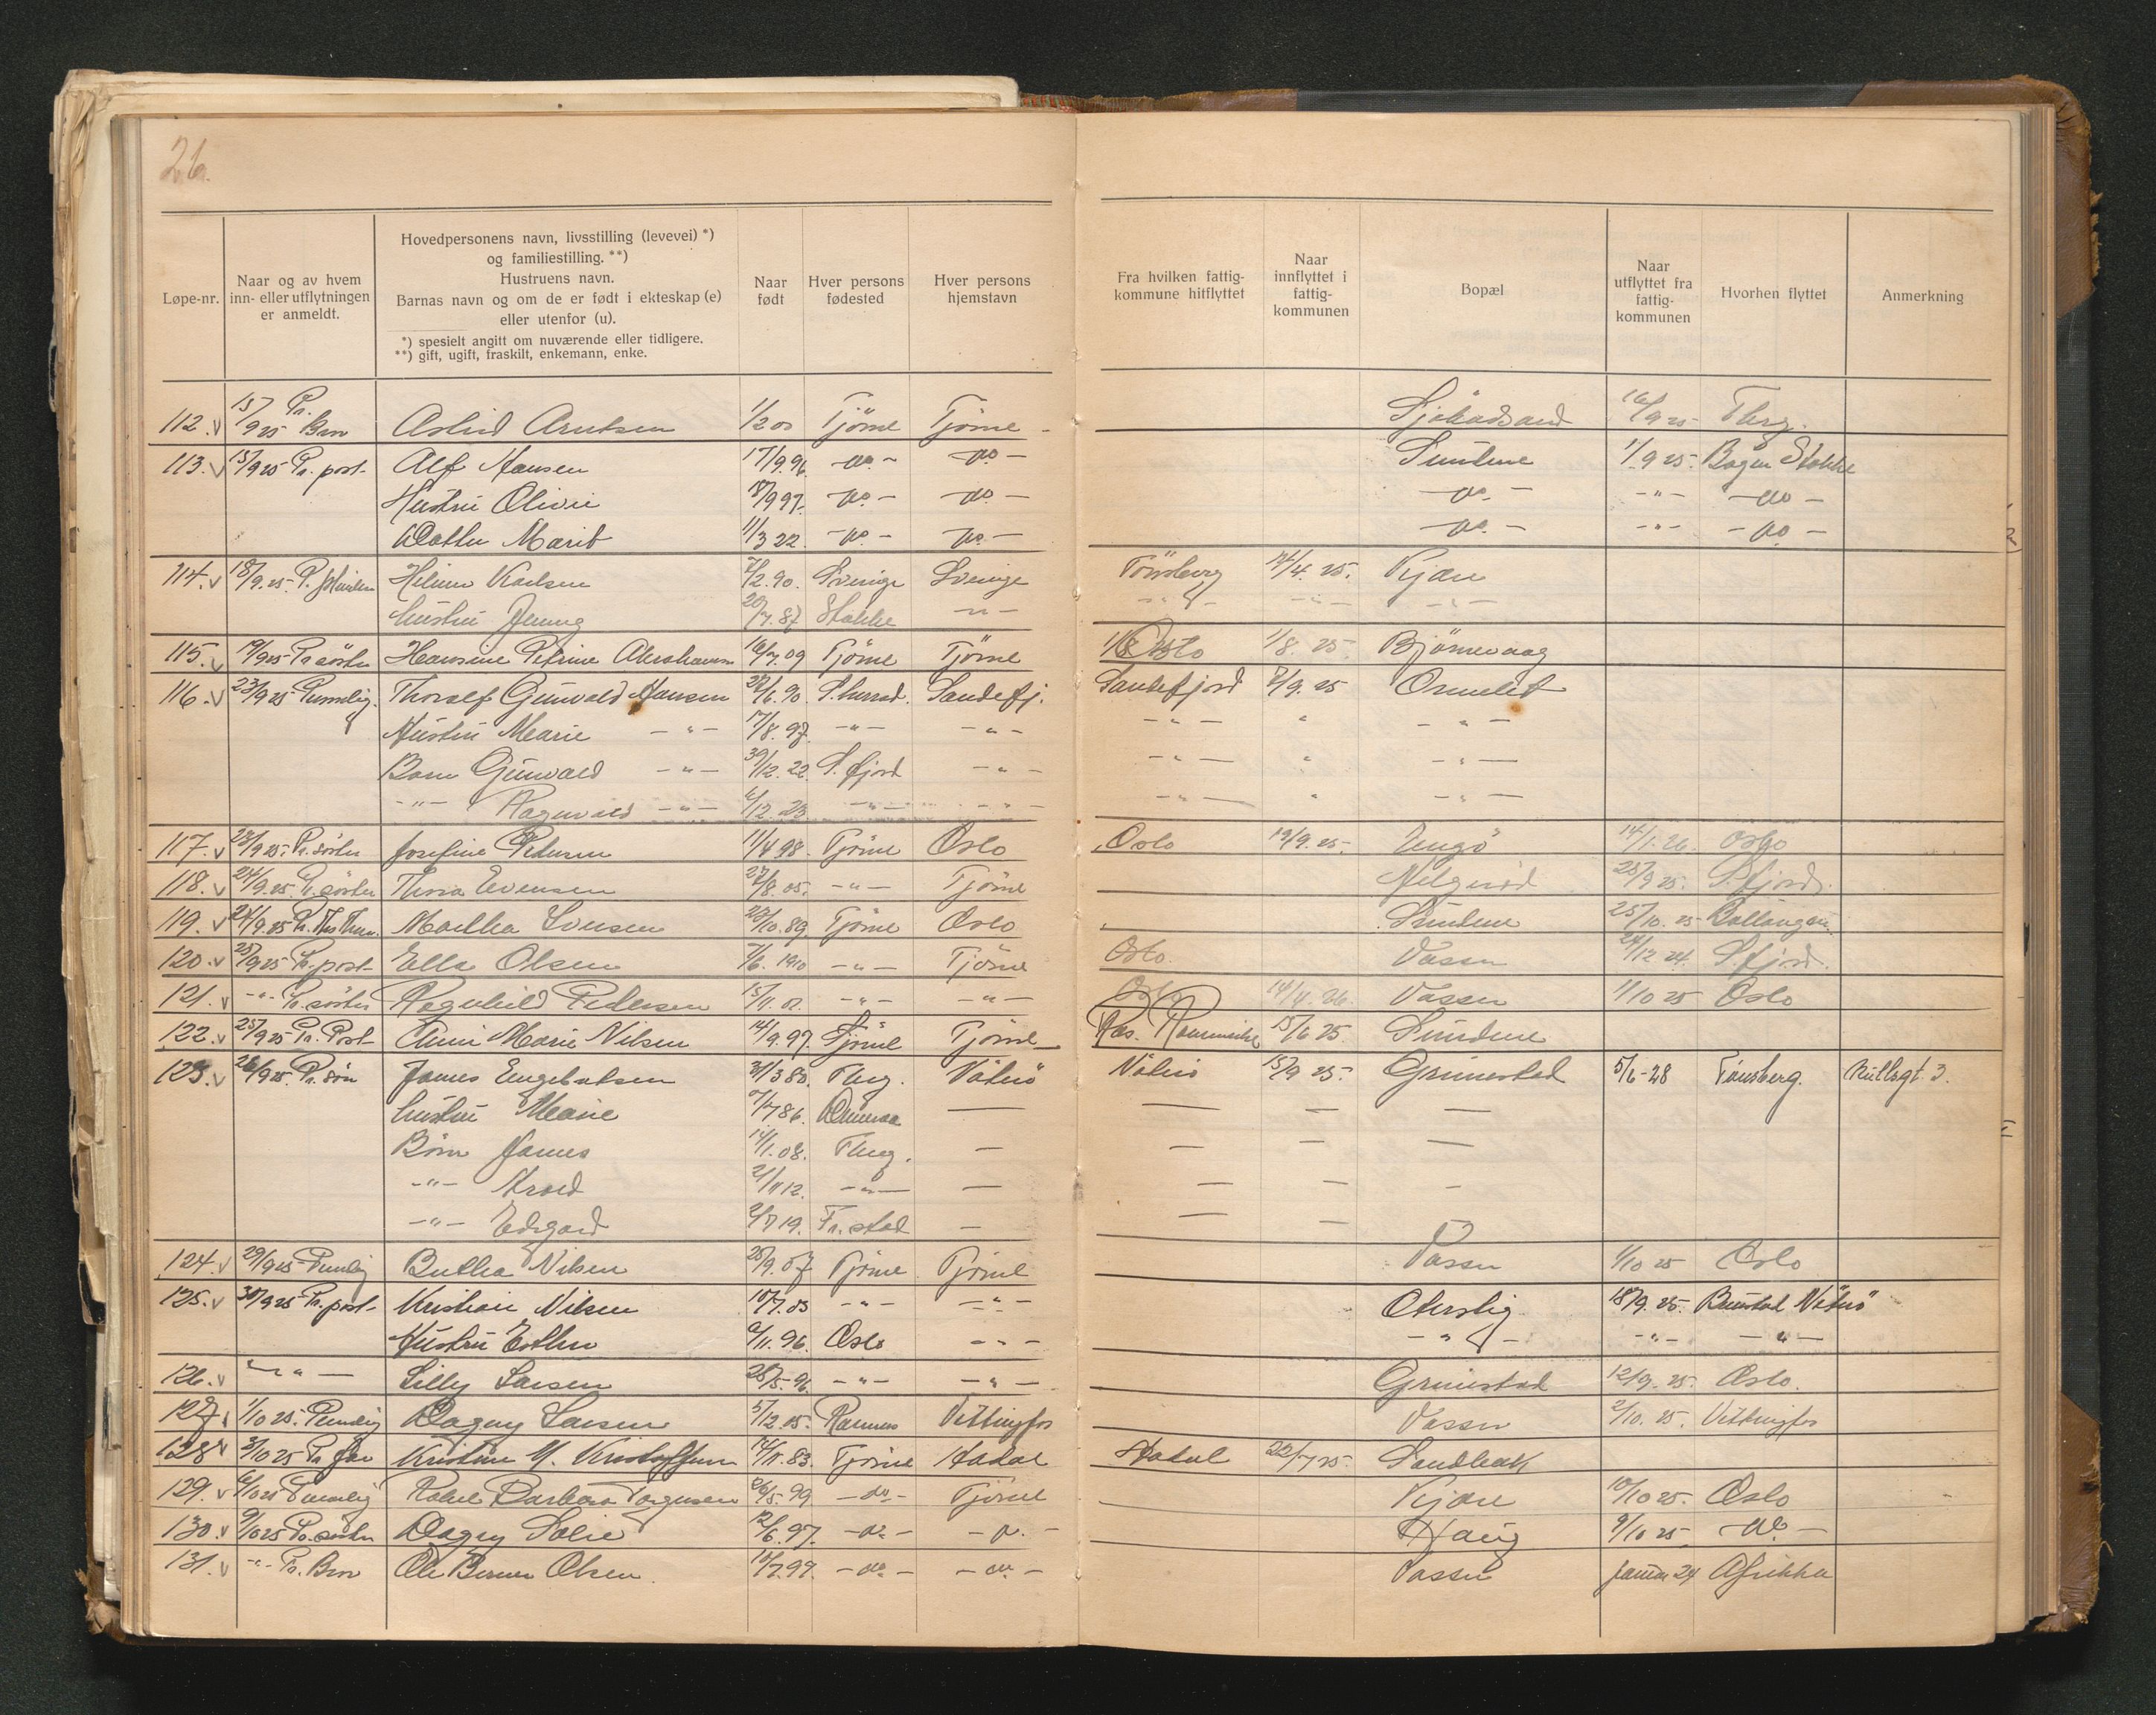 26.
Løpe-nr.
Naar og av hvem inn- eller utflytningen er anmeldt.
Hovedpersonens navn, livsstilling (levevei) *) og familiestilling. **)
Hustruens navn.
Barnas navn og om de er født i ekteskap (e) eller utenfor (u).
*) spesielt angitt om nuværende eller tidligere.
**) gift, ugift, fraskilt, enkemann, enke.
Naar født
Hver persons fødested
Hver persons hjemstavn
Fra hvilken fattig-kommune hitflyttet
Naar innflyttet i fattig-kommunen
Bopæl
Naar utflyttet fra fattig-kommunen
Hvorhen flyttet
Anmerkning
112. v 15/9 25 Pr. Bror Astrid Arntsen 1/2 00 Tjöme Tjöme 16/9 25 Tbrg.
113. v 15/9 25 Pr. post Alf Hansen 17/9 96 - do - - do - Sundene 1/9 25 Bogen Stokke
Hustru Olivie 18/9 97. - do - - do - - do - - " - - do -
Datter Marit 11/3 22. - do - - do - - do - - " - - do -
114. v 18/9. 25 P. Karlsen 7/2. 90. Sverige Sverige Tönsberg 14/4. 25. Kjære
hustru Jenny 20/7. 87 Stokke - " - - " - - " - - " -
115. v 19/9 25 Pr söster Hansine Petrine 16/7. 09 Tjöme Tjöme Oslo 1/8. 25 Bjönnevaag
116. v 23/9 25 Personlig. Thoralf Gunvald Hansen 22/6. 90. Sandefj. Sandefjord 7/9. 25 Ormelet
Hustru Marie - " - 17/8. 97. - " - - " - - " - " - " -
Barn Gunvald - " - 30/12. 22. S. fjord - " - - " - " - " -
- " - Ragnvald - " - 6/12. 23. - " - - " - - " - " - " -
117. v 23/9 25. Pr. söster Josefine Petersen 11/4 98 Tjöme Oslo Oslo 19/9. 25. Engö 14/1. 26. Oslo
118. v 24/9. 25. Pr. söster Thora Evensen 27/8. 05. - " - Tjöme Helgeröd 25/9 25. S. fjord.
119. v 24/9. 25 Pr. Martha Iversen 23/10. 89. Tjöme Oslo Sundene 25/10. 25
120. v 25/9 25 Pr. post Ella Olsen 7/6. 1910 - " - Tjöme Oslo. Vasser 24/12 24. S. fjord.
121. v - " - Pr. söster Ragnhild Pedersen 15/11. 02. - " - - " - Oslo 14/4. 26. Vasser 1/10 25 Oslo
122. v 25/9 25 Pr. Post Anni Marie Nilsen 14/9. 97. Tjöme Tjöme 15/6 25. Sundene
123. v 26/9 25. Pr. sön James Engebretsen 31/3 80. Tbrg. Nöterö Nöterö 15/9 25. Grimestad 5/6-28 Tönsberg. 3.
hustru Marie 7/7 86.
Börn James 14/1. 08. Tbrg.
- " - 2/11 12. - " -
- " - Edgard 2/7 19. Fr. stad
124. v 29/9 25 Personlig Bertha Nilsen 25/9. 07 Tjöme Tjöme Vasser 1/10 25 Oslo
125. v 30/9 25 Pr. post Kristian Nilsen 10/7. 03 - " - - " - 18/9. 25. Nöterö
Hustru Esther 9/11. 96. Oslo - " - - " - - " - - " -
126. v - " - Lilly Larsen 28/5. 96. - " - - " - Grimestad 12/9. 25. Oslo.
127. v 1/10 25. Personlig Dagny Larsen 5/12. 05. Ramnes Vittingfos Vasser 2/10. 25. Vittingfos
128 v 3/10 25 Pr far Kristine M. Kristoffersen 14/11. 83. Tjöme Hadal Hadal 22/7 25. Sandbæk
129. v 6/10 25 Personlig Rakel Barbara Torgersen 26/5. 99. - do - Tjöme Kjære 10/10 25. Oslo
130. v 9/10 25 Pr. söster Dagny Solie 12/6. 97. - do - - do - Haug 9/10 25 - do -
131. v - " - Pr. Bror Ole Berner Olsen. 10/7. 97. - do - - do - Vasser Januar 24 Afrikka